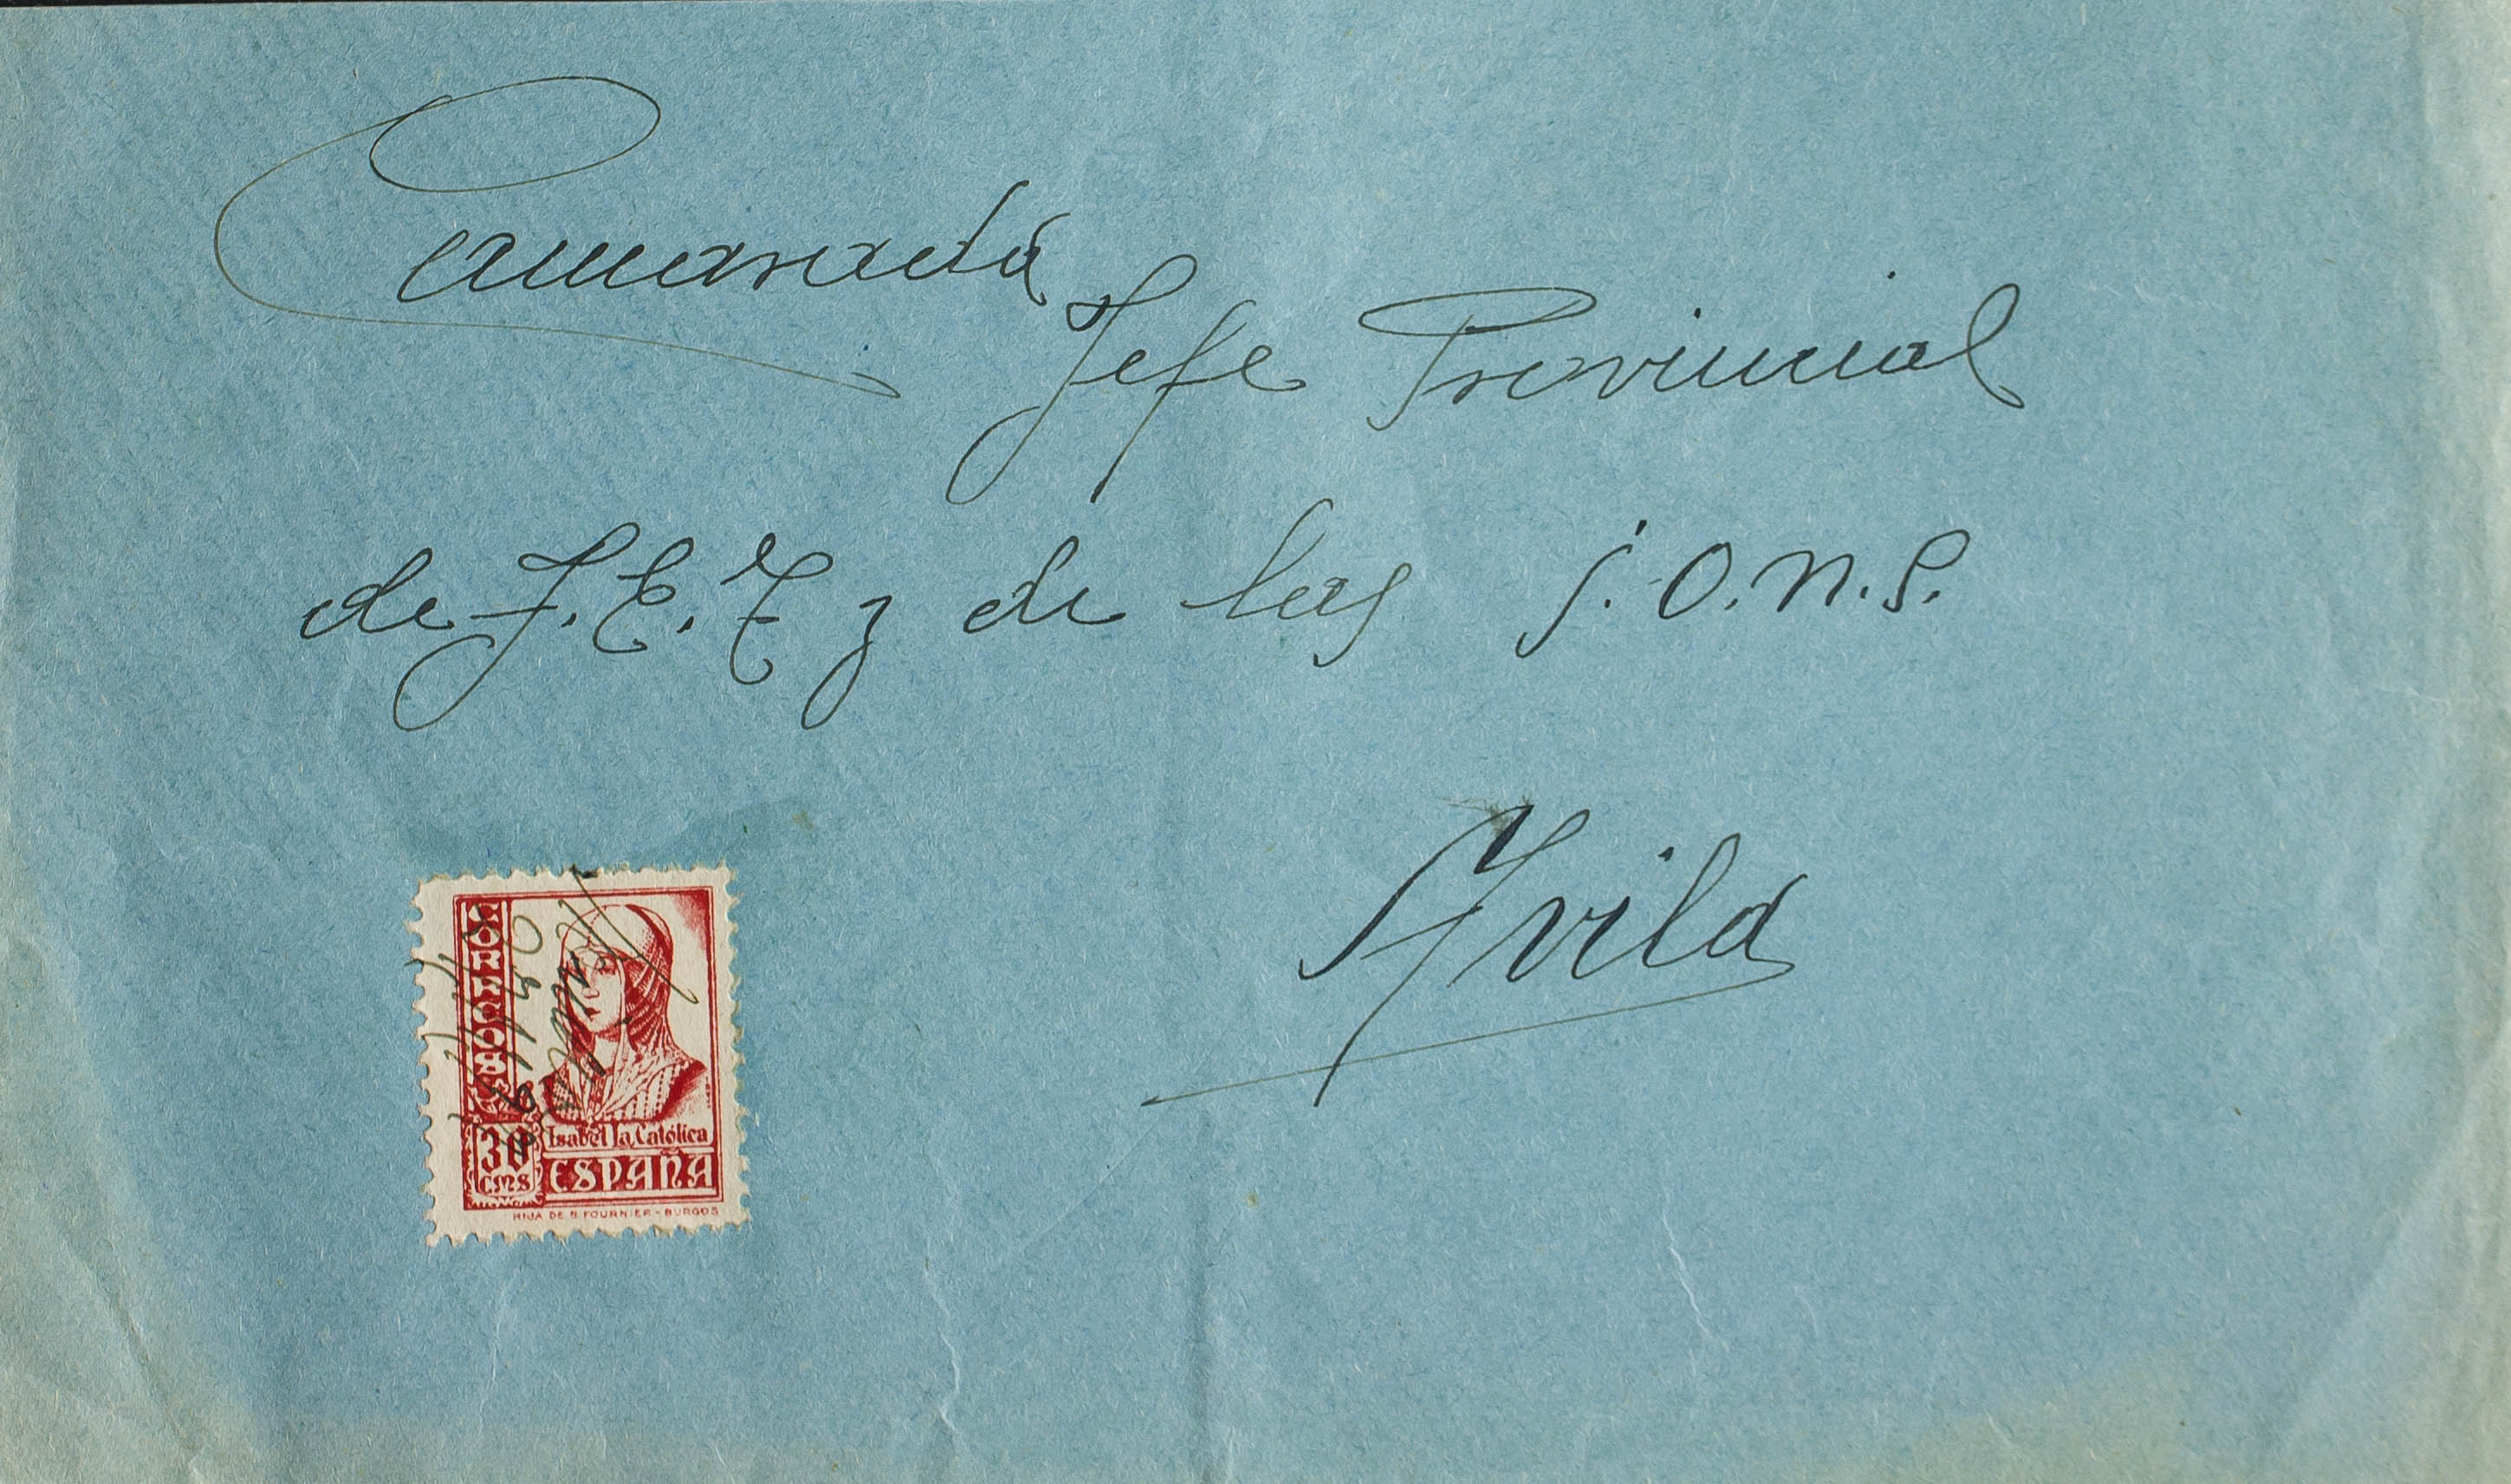 Camarada
Jefe Provincial
de F.E.T y de las J.O.N.S.
Avila
CORREOS
30
CMS
Isabel la Católica
ESPAÑA
HIJA DE B. FOURNIER - BURGOS